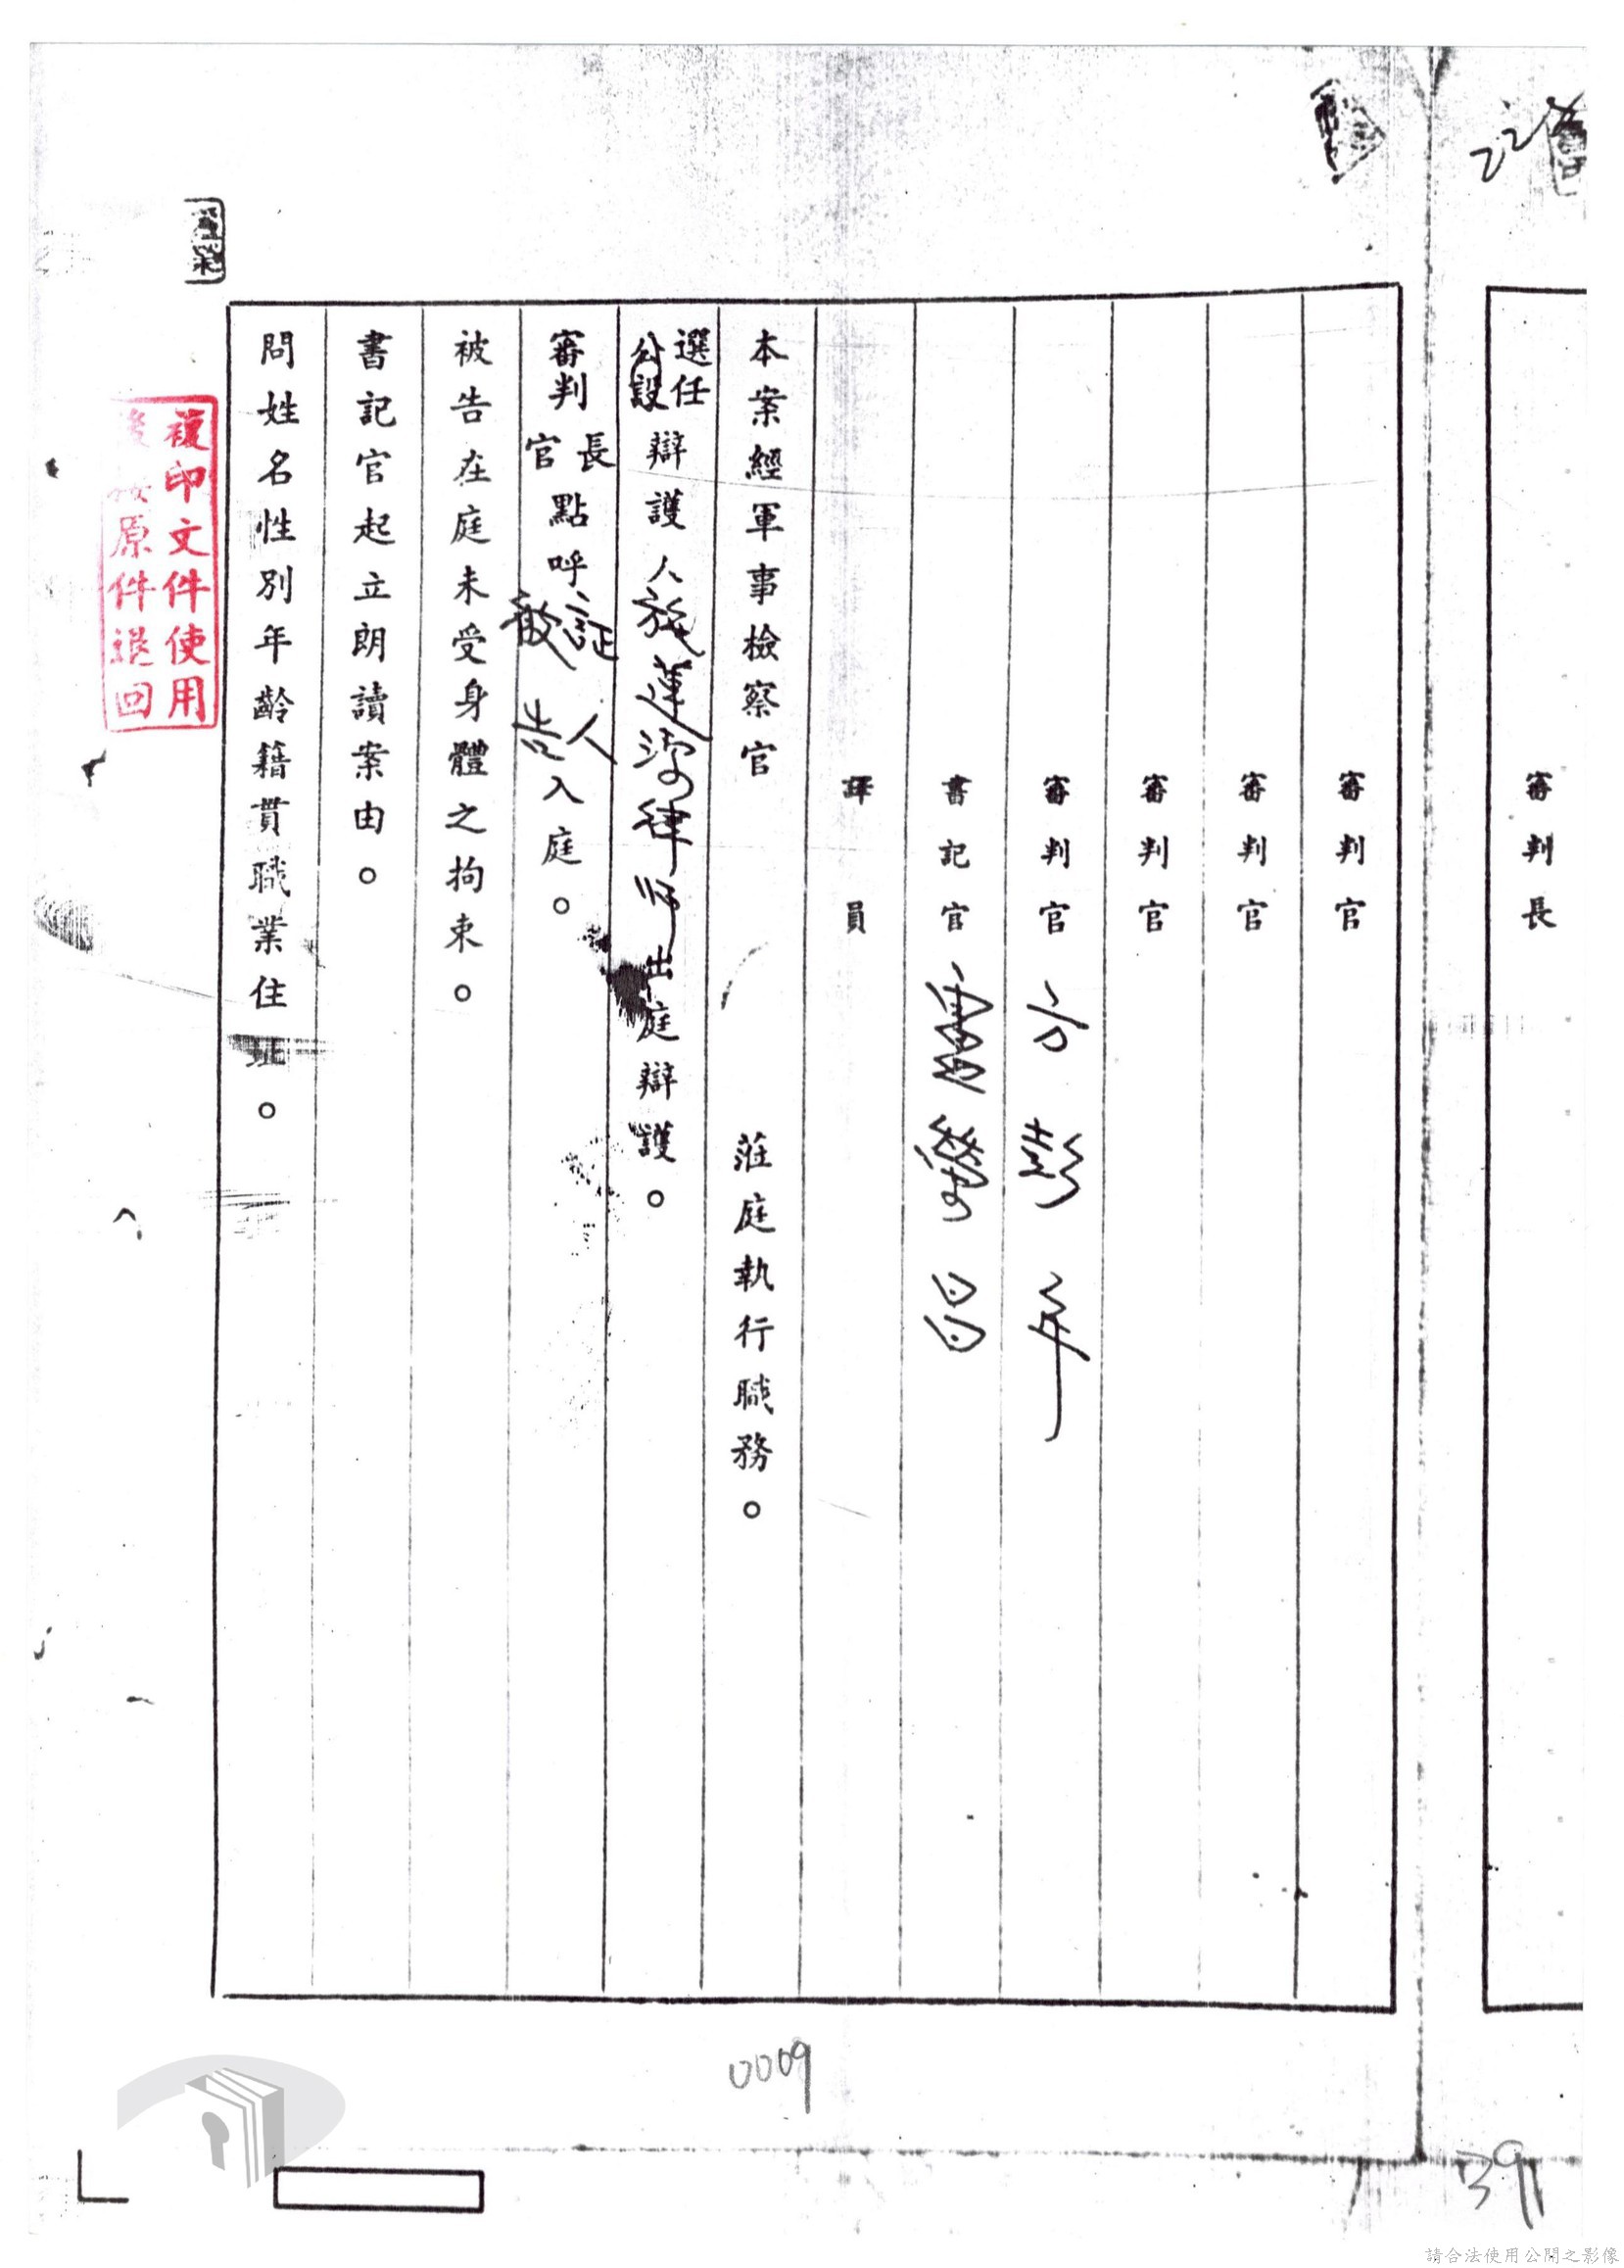 審判長
審判官
審判官
審判官
審判官 方彭年
書記官
譯員
本案經軍事檢察官 莅庭執行職務。
選任
公設
辯護人
律師出庭辯護。
審判
長
官
點呼
証人
被告
入庭。
被告在庭未受身體之拘束。
書記官起立朗讀案由。
問姓名性別年齡籍貫職業住址。
複印文件使用
後 原件退回
0009
39
請合法使用公開之影像